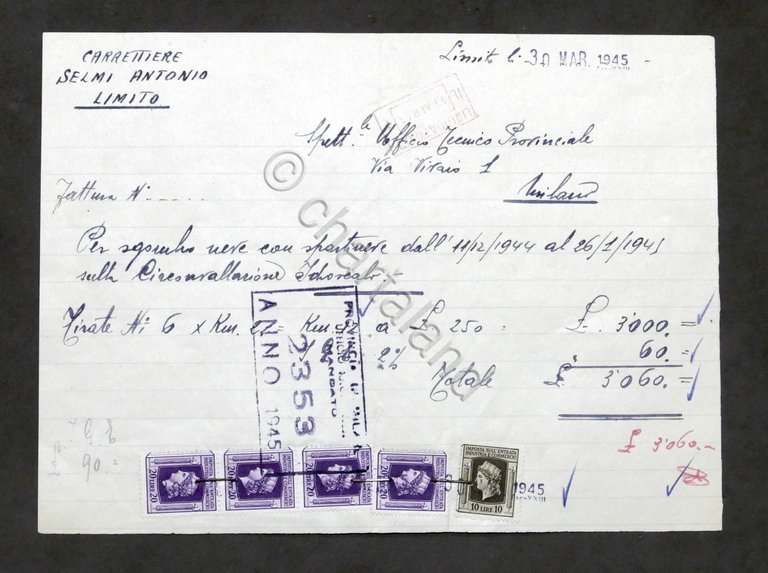 CARRETTIERE
SELMI ANTONIO
LIMITO
Limito li 30 MAR. 1945 -
Spett.le Ufficio Tecnico Provinciale
Via Vivaio 1
Milano
Fattura N. -----
Per sgombro neve con spartineve dall' 11/12/1944 al 26/1/1945
sulla Circonvallazione Idroscalo
Tirate N: 6 x Km. = Km. a £ 250 = £. 3'000. =
2% 60. =
Totale £. 3'060. =
£ 3'060.-
PROVINCIA DI MILANO
MANDATO
2353
ANNO 1945
G. E
90. =
20 LIRE 20
20 LIRE 20
20 LIRE 20
20 LIRE 20
IMPOSTA SULL'ENTRATA
INDUSTRIA E COMMERCIO
10 LIRE 10
1945
© chartaland